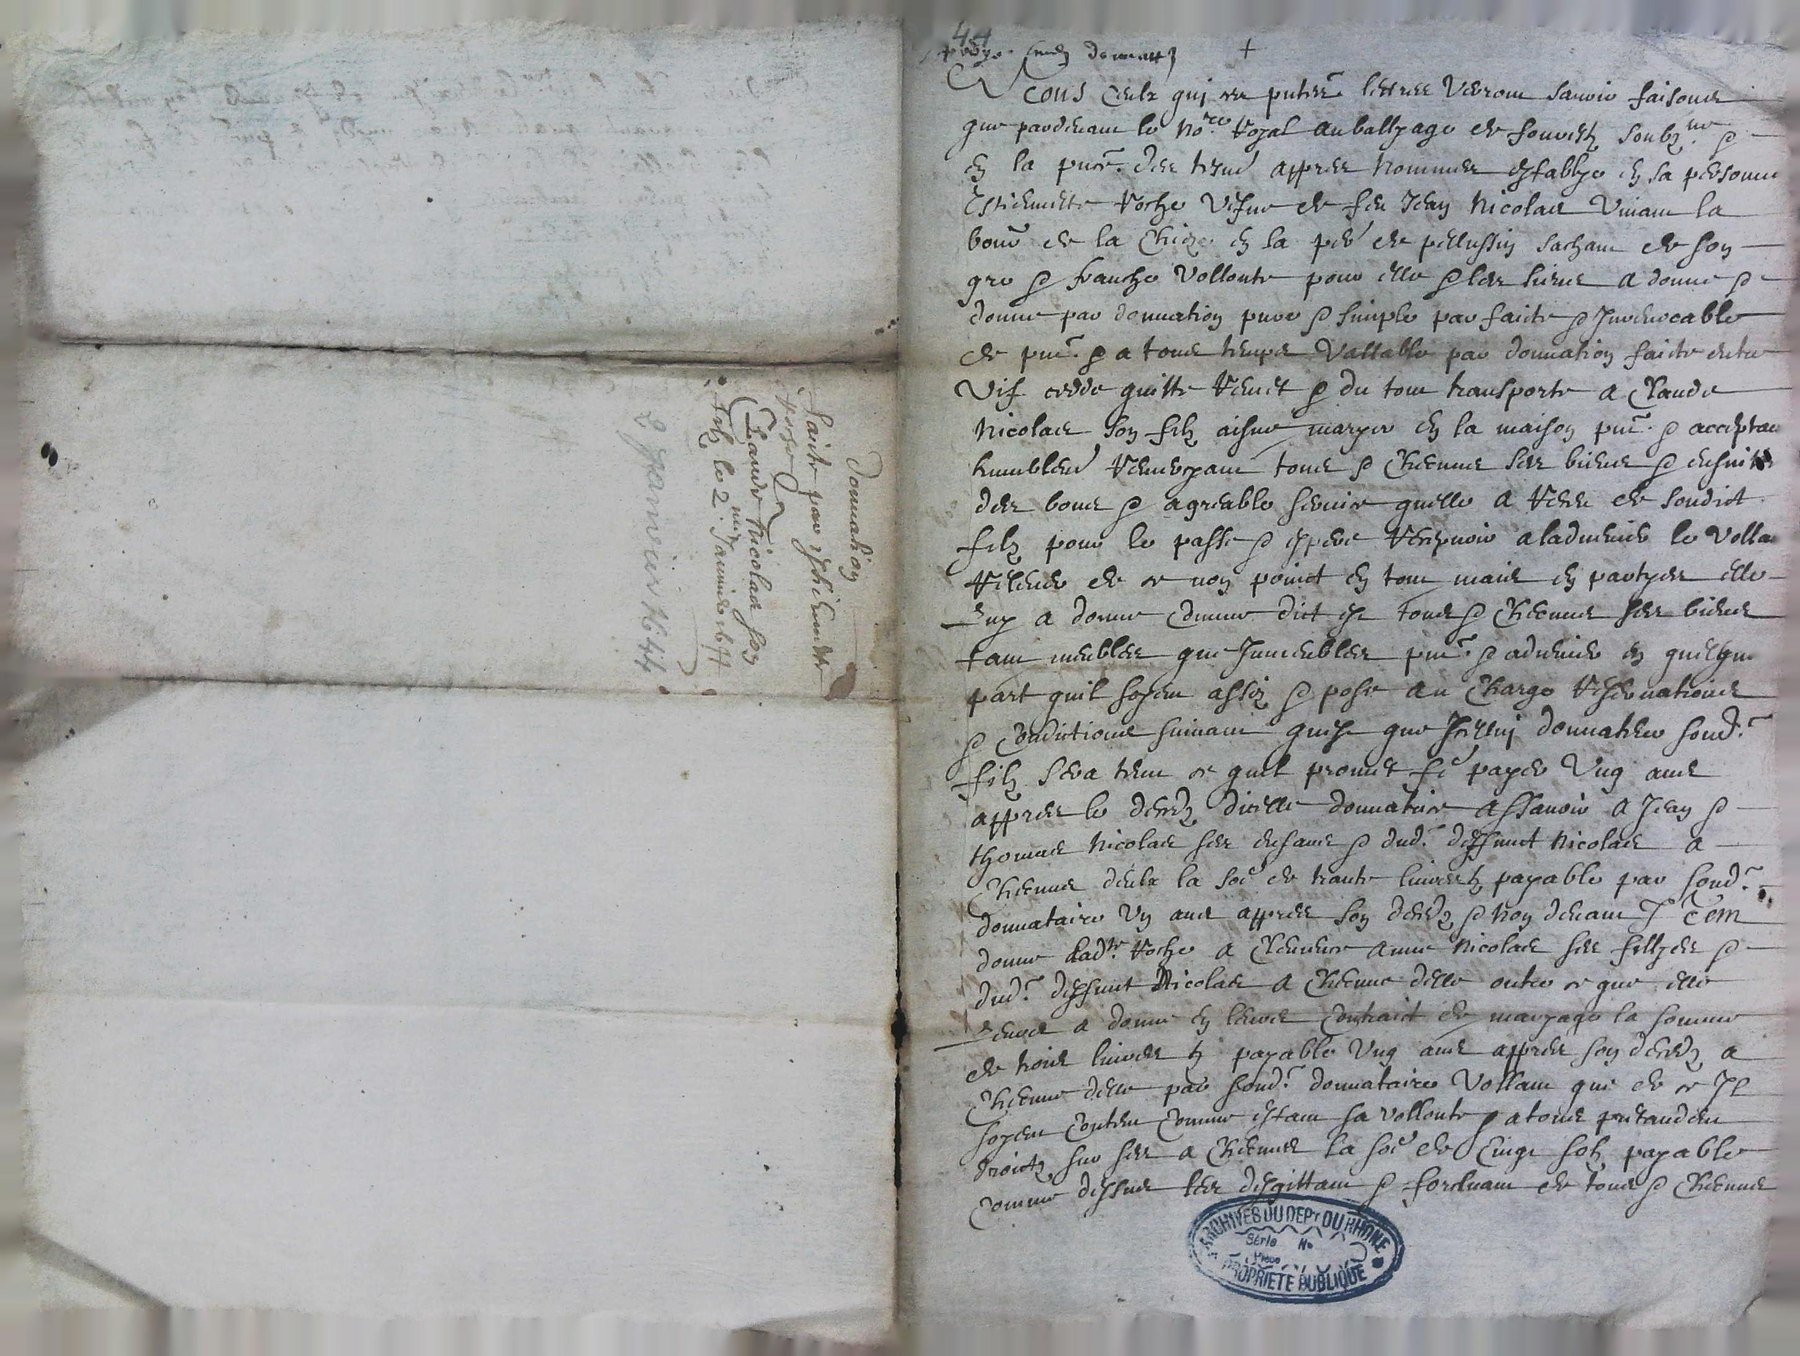 donnation
faicte par estiennette
Voche a
Claude Nicolas son
filz le 2.me Janvier 1644
2 janvier 1644
44
A Tous ceulx qui ces pntes lettres verront savoir faisons
que pardevant le no.re Royal au balliage de fourestz soubz.ne &
en la pnce des tesmoins appres nommes establye en sa personne
Estiennette Voche vefve de feu Jean Nicolas vivant la
de la en la de pellussin sachant de son
gre & franche vollonte pour elle & les siens a donne &
donne par donnation pure & simple parfaicte & Irrevocable
de pnt & a tous temps vallable par donnation faicte entre
vif cedde quitte Remet & du tout transporte a Claude
Nicolas son filz aisne marye en la maison pnt & acceptant
humblemt Remercyant tous & Chescungs ses biens & ensuitte
des bons & agreable service quelle a Receu de sondict
filz pour le passe & espere Recepvoir a ladvenir le vollant
Relever de ce non poinct en tout mais en partye elle
luy a donne comme dict est tous & Chescungs ses biens
tant meubles que Immeubles pnt & advenir en quelque
part quil soyent assiz & pose au Charge Reservations
& Condictions suivant quest que Icelluy donnateur sond.
filz sera tenu ce quil promet fe payer Ung ans
appres le decedz dicelle donnatrice assavoir a Jean &
thomas Nicolas ses enfans & dud. deffunct Nicolas a
Chescung deulx la soe de trante livres tz payable par sond.
donnataire Un ans appres son decedz & non devant Item
donne lad.te Voche a anne Nicolas ses fillyes &
dud. deffunct Nicolas a Chescune delle outre ce que elle
leurs a donne en leurs Contraict de maryage la somme
de trois livres tz payable Ung ans appres son decedz a
Chescune delle par sond. donnataire Vollant que de ce Il
soyent Content Comme estant sa vollonte & a tous pretandeu
droictz sur ses a Chescungs la soe de Cinqz solz payable
comme dessus les desgittant & forcluant de tous & Chescungs
ARCHIVES DU DEPt DU RHONE
Série No
Pièce
PROPRIÉTÉ PUBLIQUE